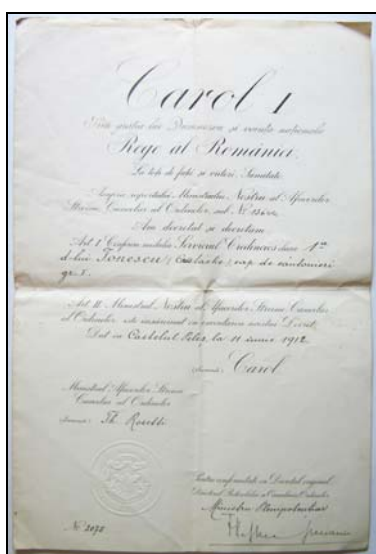 Carol I
Prin grația lui Dumnezeu și voința națională
Rege al României,
La toți de față și viitori, Sănătate
Asupra raportului Ministrului Nostru al Afacerilor
Străine, Cancelar al Ordinelor, sub No
Am decretat și decretăm
Art. I Conferim medalia Serviciul Credincios clasa I-a
d-lui Ionescu cap de cantonieri
gr. I.
Art. II Ministrul Nostru al Afacerilor Străine, Cancelar
al Ordinelor, este însărcinat cu executarea acestui Decret.
Dat în Castelul Peleș la 11 iunie 1912
Carol
Ministrul Afacerilor Străine
Cancelar al Ordinelor
Th. Rosetti
Pentru conformitate cu Decretul original
Directorul Protocolului și Cancelariei Ordinelor
Ministru Plenipotențiar
No 2075